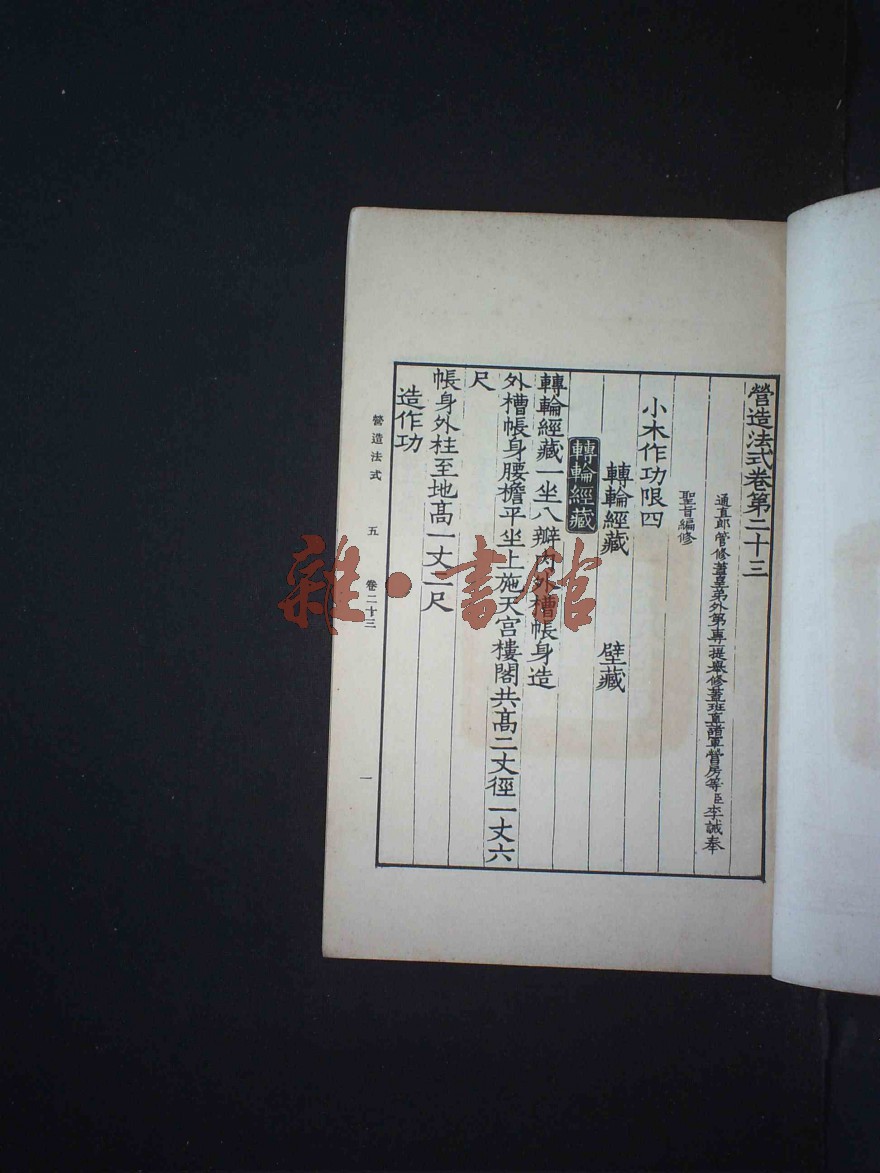 營造法式卷第二十三
通直郎管修蓋皇弟外第專一提舉修蓋班直諸軍營房等臣李誡奉
聖旨編修
小木作功限四
轉輪經藏 壁藏
轉輪經藏
轉輪經藏一坐八瓣內外槽帳身造
外槽帳身腰檐平坐上施天宮樓閣共髙二丈徑一丈六
尺
帳身外柱至地髙一丈二尺
造作功
營造法式 五 卷二十三 一
雜·書館